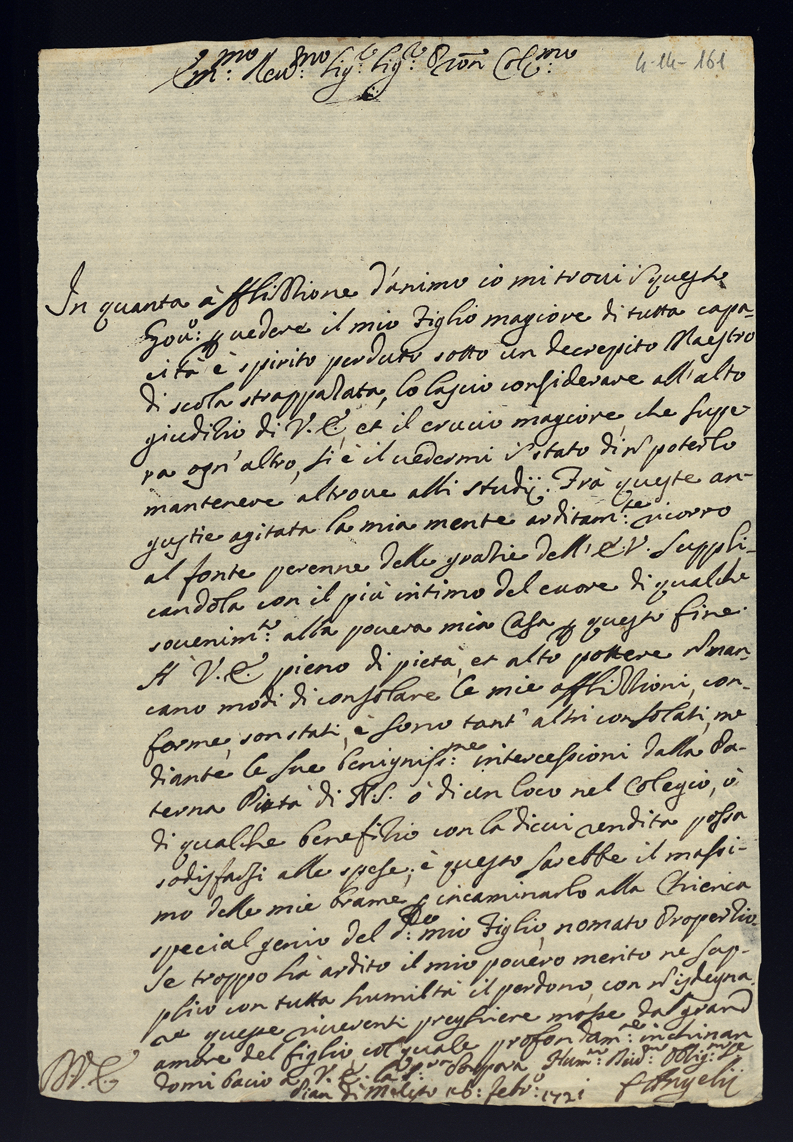 E.mo Rev.mo Sig.r Sig.r Pron Col.mo
4-14-161
In quanta afflizzione d'animo io mi trovi in questo
Gov.o: p vedere il mio Figlio magiore di tutta capa-
cità è spirito perduto sotto un decrepito Maestro
di scola strappazzata, lo lascio considerare all'alto
giudizio di V.E., et il crucio magiore, che supe
ra ogn'altro, si è il vedermi in stato di nõ poterlo
mantenere altrove alli studij. Frà queste an-
gustie agitata la mia mente arditam.te ricorro
al fonte perenne delle grazie dell'E.V. suppli-
candola con il più intimo del cuore di qualche
sovenim.to alla povera mia Casa p questo fine.
A V.E. pieno di pietà, et alto pottere nõ man-
cano modi di consolare le mie afflizzioni, con-
forme, son stati, è sono tant'altri consolati, me
diante le sue benigniss.me intercessioni dalla Pa-
terna Pietà di N.S. ò di un loco nel Colegio, ò
di qualche benefizio con la di cui rendita possa
sodisfarsi alle spese, è questo sarebbe il massi-
mo delle mie brame p incaminarlo alla Chierica
special genio del d.o mio Figlio, nomato Properzio.
Se troppo hà ardito il mio povero merito ne sup-
plico con tutta humiltà il perdono, con nõ isdegna
re queste riverenti preghiere mosse dal grand
amore del figlio col quale profondam.te inchinan
domi bacio a V.E. la S. Porpora Hum.mo Div.mo Oblig.mo Se
Pian di Meleto 16: Feb.o 1721
F Angelij
D.V.E.